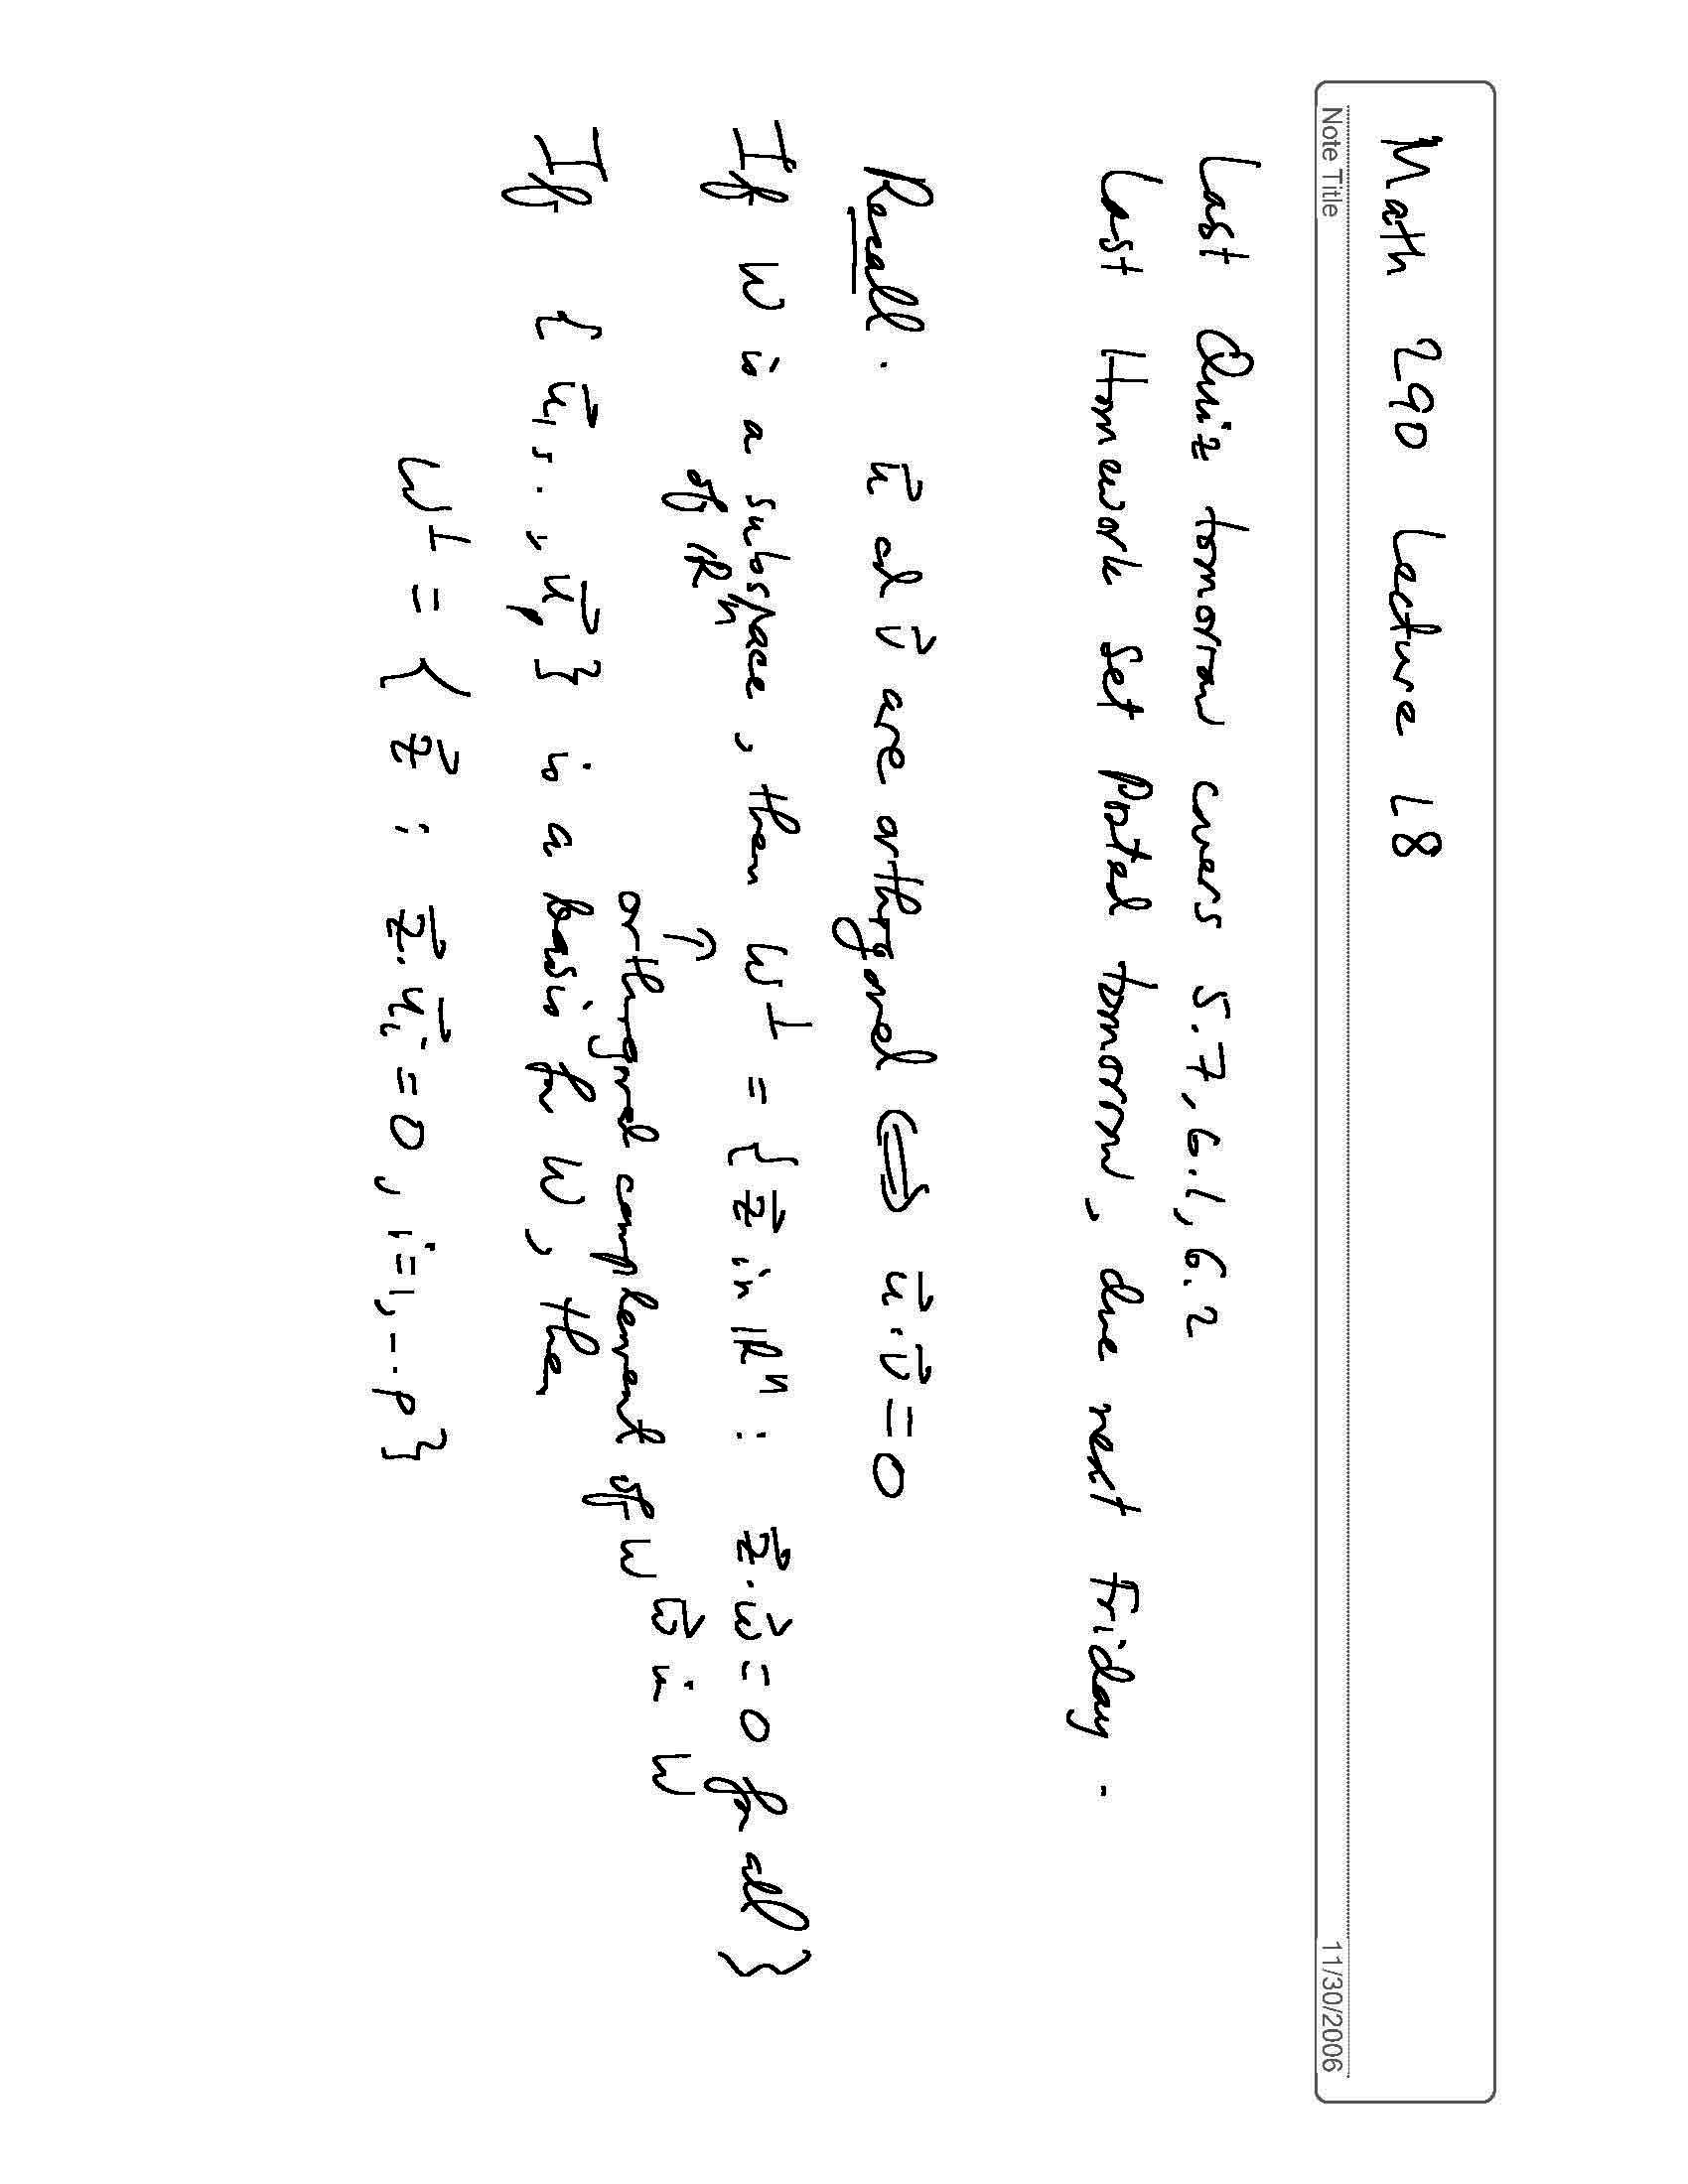 Math 290 Lecture 18
Note Title
11/30/2006
Last Quiz tomorrow covers 5.7, 6.1, 6.2
Last Homework Set Posted tomorrow, due next Friday.
Recall. u⃗ ad v⃗ are orthogonal ⟺ u⃗·v⃗ = 0
If W is a subspace, then W⊥ = { z⃗ in ℝⁿ : z⃗·w⃗ = 0 for all }
of ℝⁿ ↑ w⃗ in W
orthogonal complement of W
If { u⃗₁, .., u⃗ₚ } is a basis for W, then
W⊥ = { z⃗ : z⃗·u⃗ᵢ = 0, i=1, -.. p }